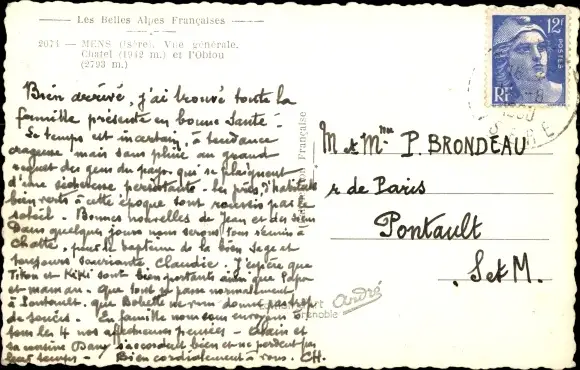 Les Belles Alpes Françaises
2071 — MENS (Isère). Vue générale.
Chatel (1942 m.) et l'Obiou
(2793 m.)
Bien arrivé, j'ai trouvé toute la
famille présente en bonne santé.
Le temps est incertain, à tendance
orageuse mais sans pluie au grand
regret des gens du pays, qui se plaignent
d'une sécheresse persistante. Les prés, d'habitude
bien verts à cette époque sont roussis par le
soleil. Bonnes nouvelles de Jean et des siens
Dans quelques jours nous serons tous réunis à
Chatte, pour le baptême de la bien sage et
toujours souriante Claudie. J'espère que
Titon et Kiki sont bien portants ainsi que Papa
et maman. que tout se passe normalement
à Pontault, que Babette ne vous donne pas trop
de soucis. En famille nous vous envoyons à
tous les 4 nos affectueuses pensées. Alain et
sa cousine Dany s'accordent bien et ne perdent pas
leur temps. Bien cordialement à vous. CH.
M et Mme P. BRONDEAU
r de Paris
Pontault
S et M.
12F
POSTES
RF
ISERE
André
Grenoble
Française